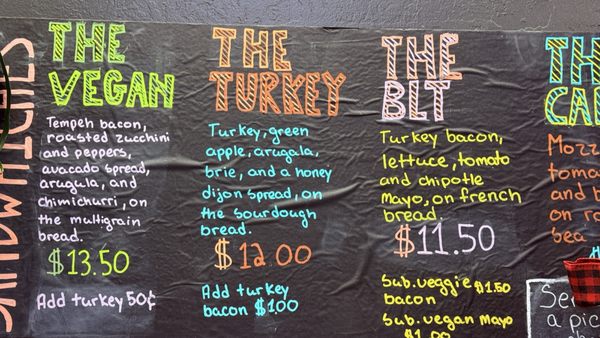 SANDWICHES
THE
VEGAN
Tempeh bacon,
roasted zucchini
and peppers,
avocado spread,
arugula, and
chimichurri, on
the multigrain
bread.
$13.50
Add turkey 50¢
THE
TURKEY
Turkey, green
apple, arugala,
brie, and a honey
dijon spread, on
the sourdough
bread.
$12.00
Add turkey
bacon $1.00
THE
BLT
Turkey bacon,
lettuce, tomato
and chipotle
Mayo, on french
bread.
$11.50
Sub. veggie $1.50
bacon
Sub. vegan Mayo
$1.00
TH
CA
Mozz
toma
and b
on ro
bea
Se
a pic